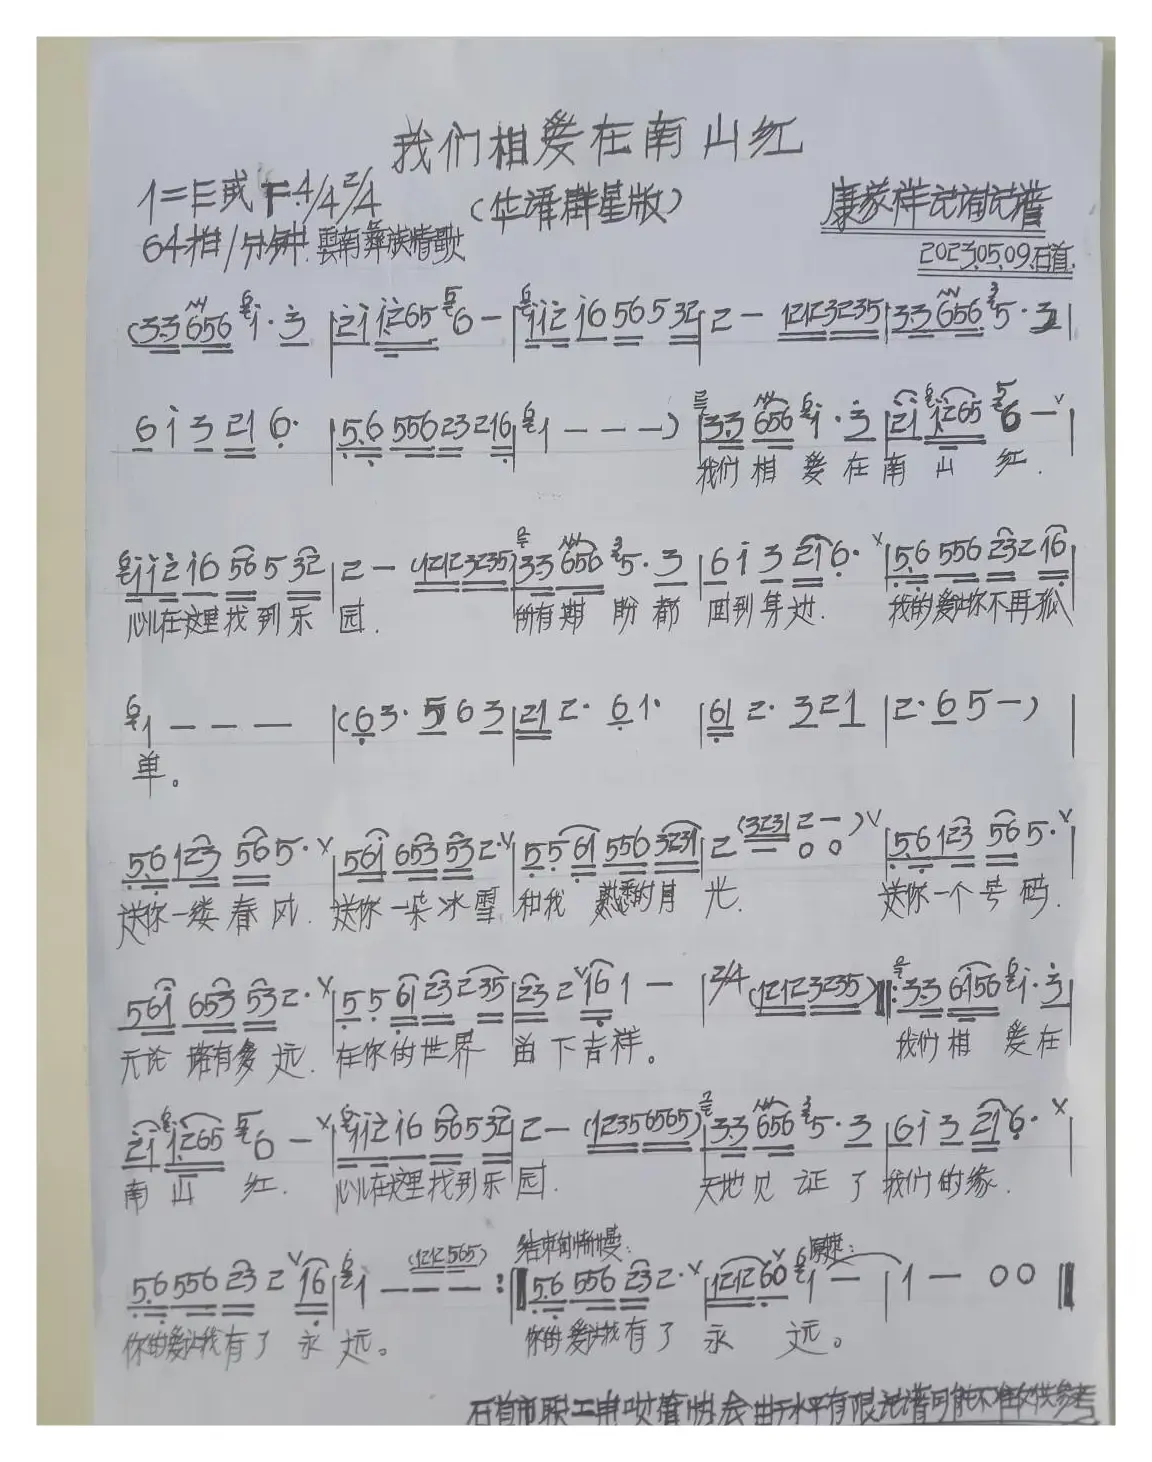 我们相爱在南山红
1=E或F 4/4 2/4 (华语群星版) 康家祥记谱
64拍/分钟 雲南彝族情歌 2023.05.09.石首.
(3·3 656 i· 3 | 2i i265 6 — | i i 2 i6 56 5 32 | 2 — 12123235 | 3·3 656 5· 3 |
6 i 3 21 6· | 5·6 556 23 216 | 1 — — —) | 33 656 i· 3 | 2i i265 6 — V |
我们相 爱在南山 红.
i i 2 i6 56 5 32 | 2 — (12123235) | 33 656 5· 3 | 6 i 3 21 6· V | 5·6 556 23 2 16 |
心儿在这里找到乐 园. 所有期 盼都 回到身边. 我的爱让你不再孤
1 — — — | (6 3· 5 6 3 | 21 2· 6 1· | 61 2· 3 21 | 2· 6 5 —) |
单。
5·6 123 56 5· V | 56i 653 53 2· V | 5 5 61 556 3231 | 2 (3231 2 —) V 0 0 | 5·6 123 56 5· V |
送你一缕春风. 送你一朵冰雪 和我 熟悉的月 光. 送你一个号码.
56i 653 53 2· V | 5 5 61 23 235 | 23 2 V 16 1 — | 2/4 (12123235) ‖: 3·3 6156 i· 3 |
无论 拥有多远. 在你的世界 留下吉祥。 我们相 爱在
2i i265 6 — V | i i 2 i6 56 5 32 | 2 — (12356565) | 3·3 656 5· 3 | 6 i 3 21 6· V |
南山 红. 心儿在这里找到乐园. 天地见 证了 我们的缘.
结束句渐慢: 原速:
5·6 556 23 2 V 16 | i — — — (1212 565) :‖ 5·6 556 23 2· V | 1212 60 V 1 — | 1 — 0 0 ‖
你的爱让我有了 永 远。 你的爱让我有了 永 远。
石首市职工电吹管协会由于水平有限记谱可能不准仅供参考